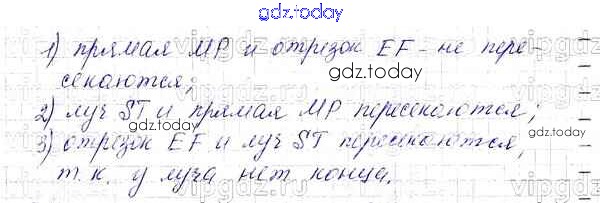 gdz.today
1) прямая MP и отрезок EF - не пере-
секаются;
gdz.today
2) луч ST и прямая MP пересекаются;
3) отрезок EF и луч ST пересекаются,
gdz.today
т.к. у луча нет конца.